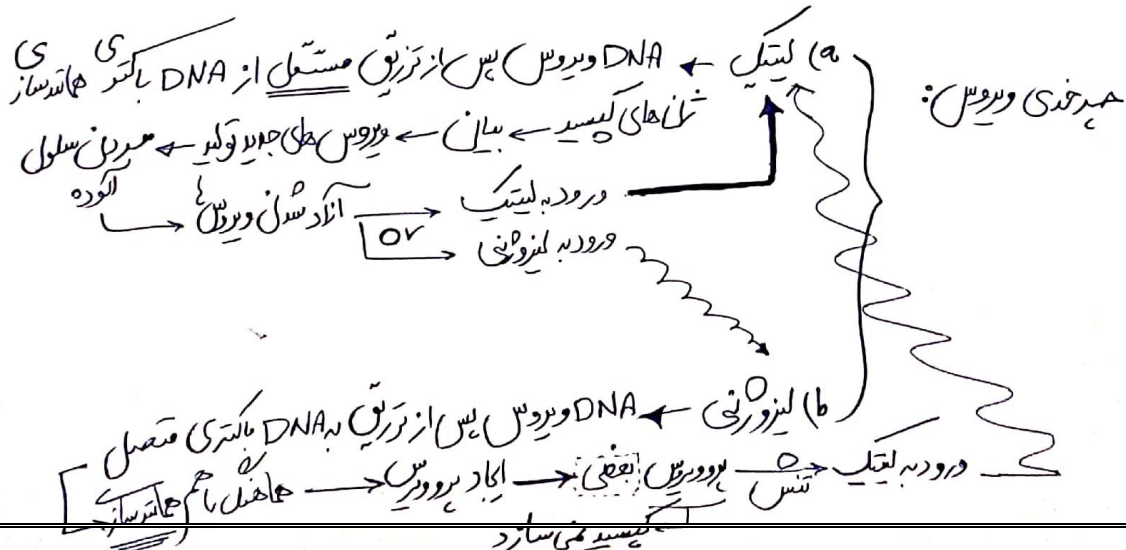 چرخه‌ی ویروس:
a) لیتیک ← DNA ویروس پس از تزریق مستقل از DNA باکتری همانندسازی
ژن‌های کپسید ← بیان ← ویروس‌های جدید تولید ← مردن سلول آلوده
آزاد شدن ویروس‌ها → ورود به لیتیک
or → ورود به لیزوژنی
b) لیزوژنی ← DNA ویروس پس از تزریق به DNA باکتری متصل
همانندسازی → ایجاد پروویروس → پروویروس → تنش → ورود به لیتیک
کپسید نمی‌سازد